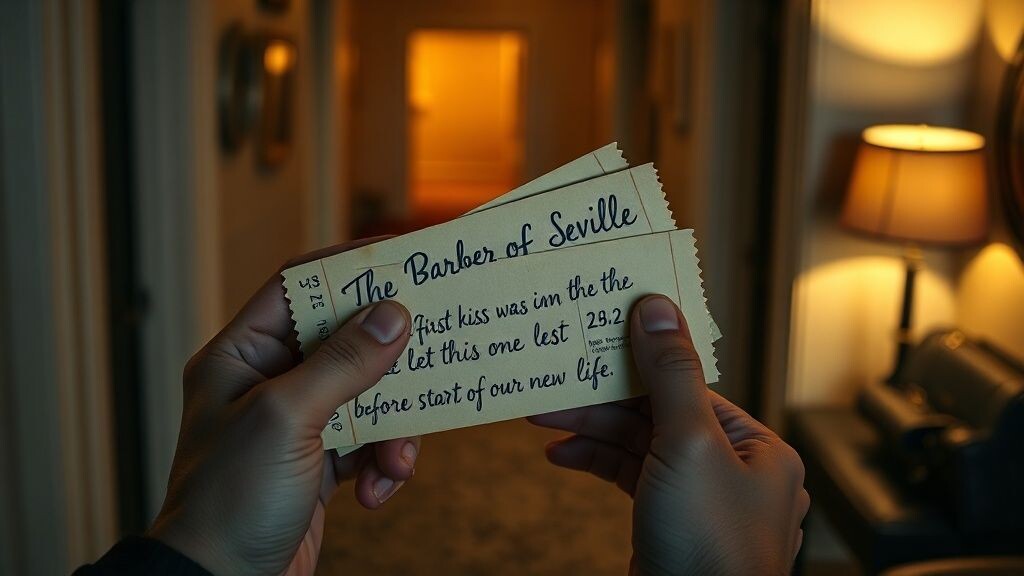 The Barber of Seville
First kiss was im the the
let this one lest
29.2
before start of our new life.